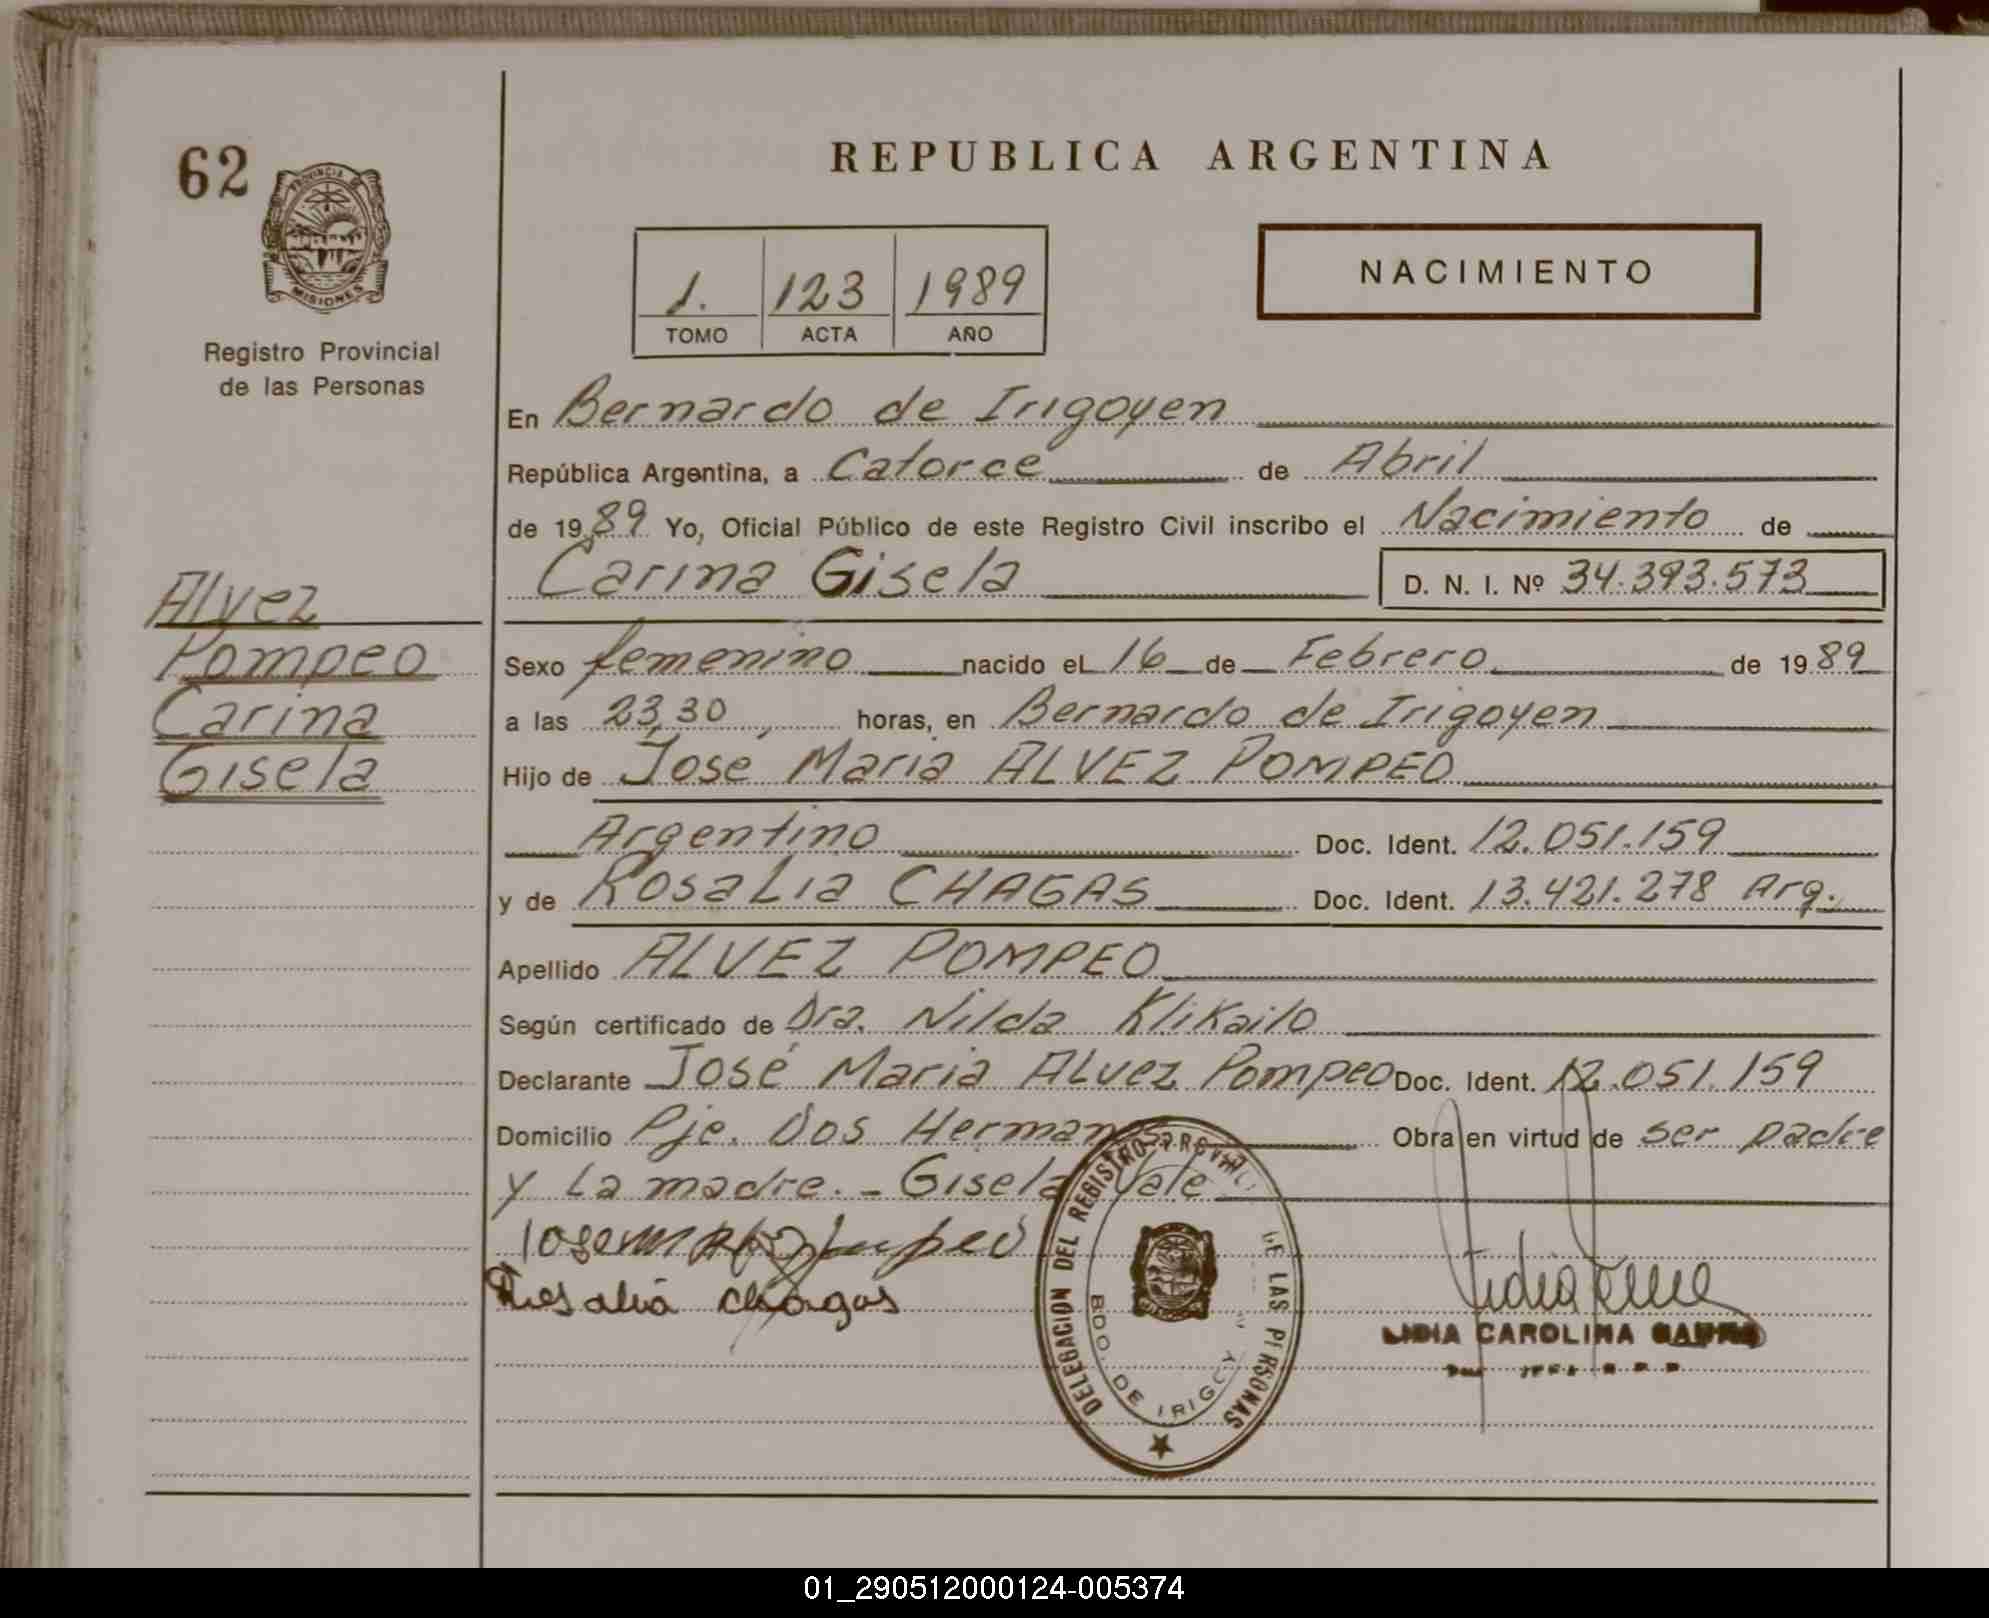 62
PROVINCIA DE
MISIONES
Registro Provincial
de las Personas
REPUBLICA ARGENTINA
1. 123 1989
TOMO ACTA AÑO
NACIMIENTO
En Bernardo de Irigoyen
República Argentina, a Catorce de Abril
de 1989 Yo, Oficial Público de este Registro Civil inscribo el Nacimiento de
Carina Gisela D. N. I. Nº 34.393.573
Alvez
Pompeo
Carina
Gisela
Sexo femenino nacido el 16 de Febrero de 1989
a las 23,30 horas, en Bernardo de Irigoyen
Hijo de José Maria ALVEZ POMPEO
Argentino Doc. Ident. 12.051.159
y de Rosalia CHAGAS Doc. Ident. 13.421.278 Arg.
Apellido ALVEZ POMPEO
Según certificado de Dra. Nilda Klikailo
Declarante José Maria Alvez Pompeo Doc. Ident. 12.051.159
Domicilio Pje. Dos Hermanas Obra en virtud de ser padre
y La madre. - Gisela Vale
Rosalia chagas
DELEGACION DEL REGISTRO PROVINCIAL DE LAS PERSONAS
BDO. DE IRIGOYEN
LIDIA CAROLINA
01_290512000124-005374